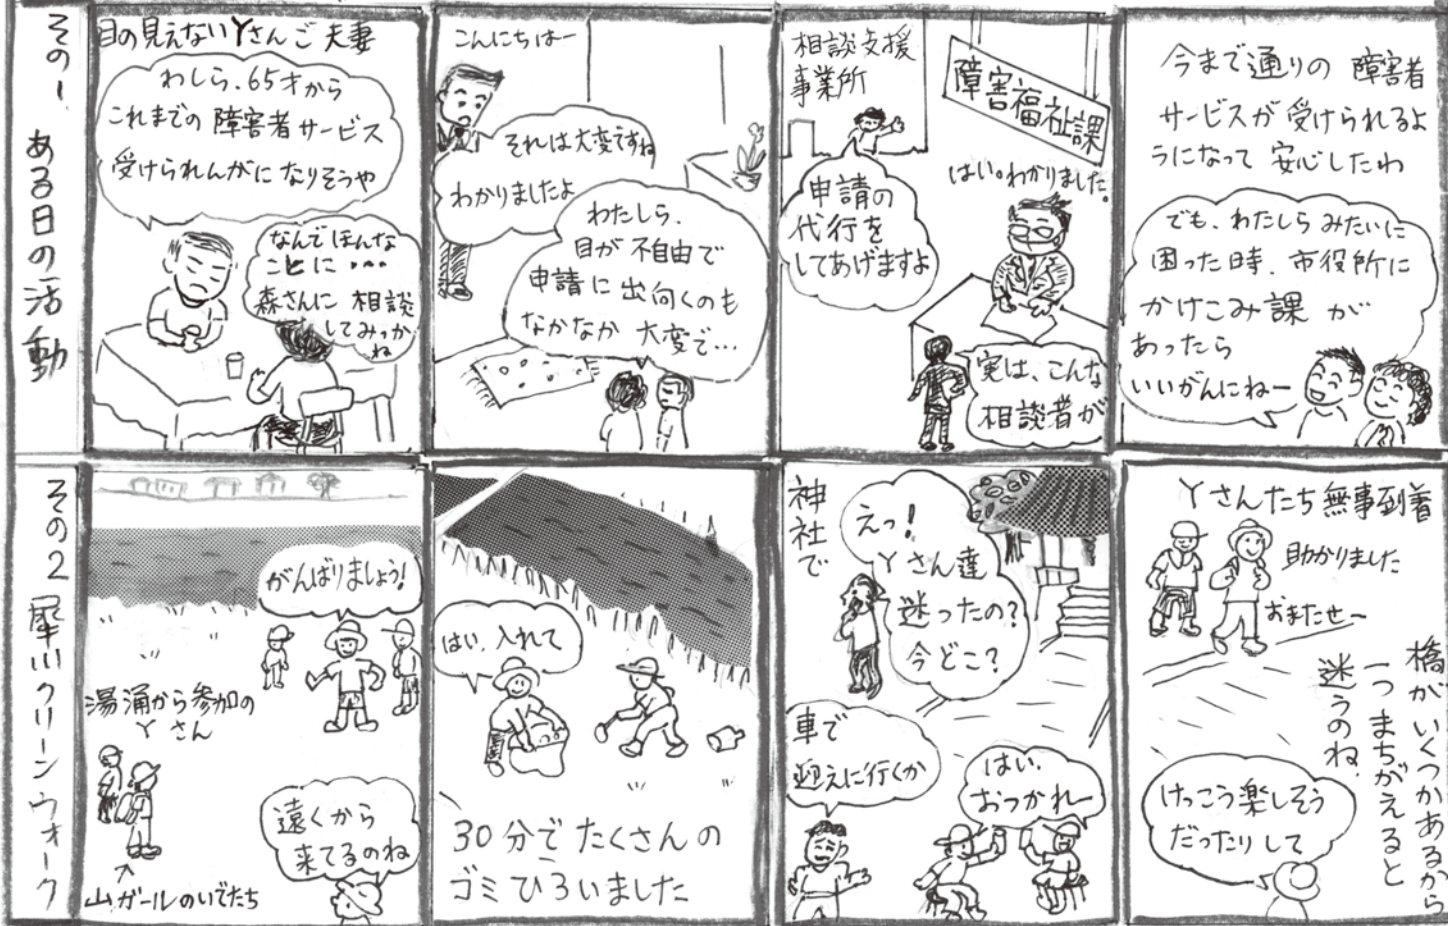 その1 ある日の活動
目の見えないYさんご夫妻
わしら、65才から
これまでの障害者サービス
受けられんがになりそうや
なんでほんな
ことに…
森さんに相談
してみっか
ね
こんにちはー
それは大変ですね
わかりましたよ
わたしら、
目が不自由で
申請に出向くのも
なかなか大変で…
相談支援
事業所
障害福祉課
申請の
代行を
してあげますよ
はい。わかりました。
実は、こんな
相談者が
今まで通りの障害者
サービスが受けられるよ
うになって安心したわ
でも、わたしらみたいに
困った時、市役所に
かけこみ課が
あったら
いいがんにねー
その2 犀川クリーンウォーク
がんばりましょう!
湯涌から参加の
Yさん
遠くから
来てるのね
山ガールのいでたち
はい、入れて
30分でたくさんの
ゴミひろいました
神社で
えっ!
Yさん達
迷ったの?
今どこ?
車で
迎えに行くか
はい、
おつかれー
Yさんたち無事到着
助かりました
おまたせ~
橋がいくつかあるから
一つまちがえると
迷うのね、
けっこう楽しそう
だったりして